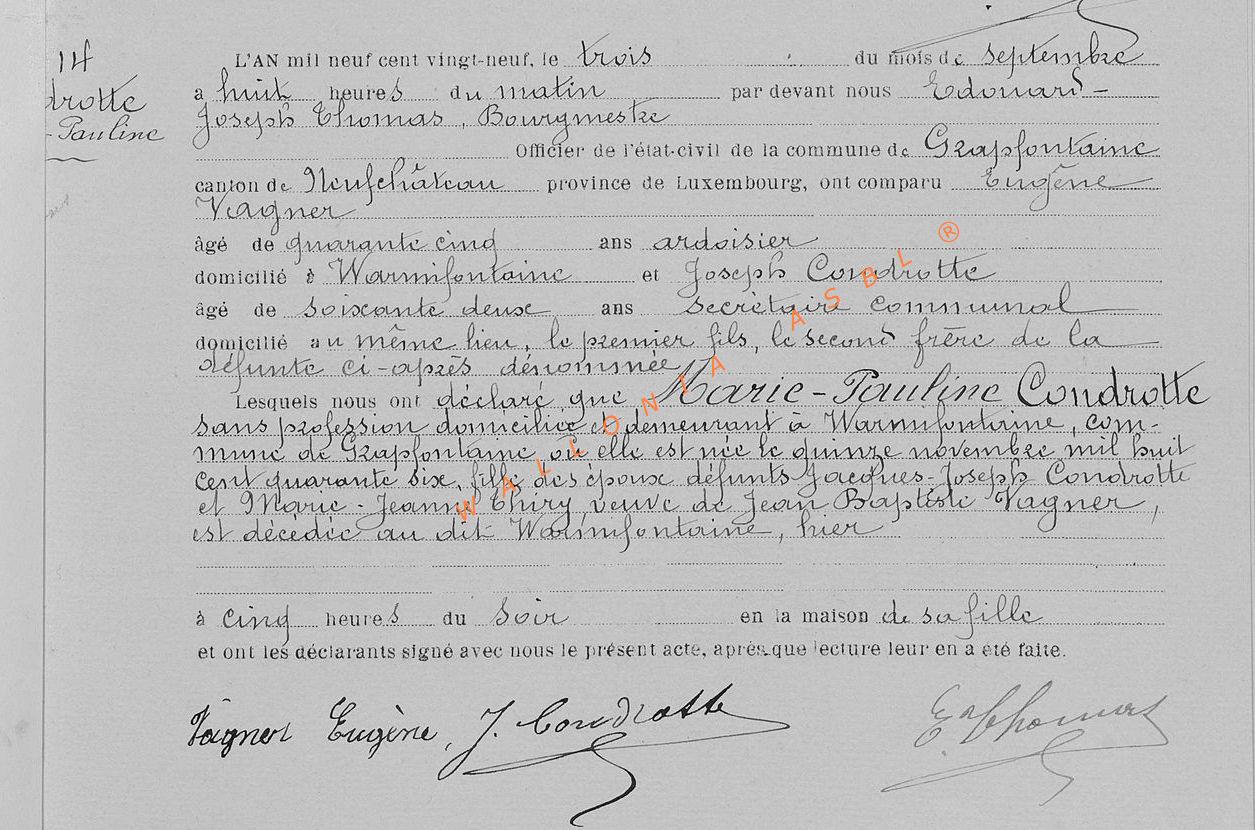 14
L'AN mil neuf cent vingt-neuf, le trois du mois de septembre
drotte
à huit heures du matin par devant nous Edouard-
Pauline
Joseph Thomas, Bourgmestre
Officier de l'état-civil de la commune de Grapfontaine
canton de Neufchâteau province de Luxembourg, ont comparu Eugène
Vagner
âgé de quarante cinq ans ardoisier
domicilié à Warmifontaine et Joseph Condrotte
âgé de soixante deux ans secrétaire communal
domicilié au même lieu, le premier fils, le second frère de la
défunte ci-après dénommée
Lesquels nous ont déclaré que Marie-Pauline Condrotte
sans profession domiciliée et demeurant à Warmifontaine, com-
mune de Grapfontaine où elle est née le quinze novembre mil huit
cent quarante six, fille des époux défunts Jacques-Joseph Condrotte
et Marie-Jeanne Thiry, veuve de Jean Baptiste Vagner,
est décédée au dit Warmifontaine, hier
à cinq heures du soir en la maison de sa fille
et ont les déclarants signé avec nous le présent acte, après que lecture leur en a été faite.
Vagner Eugène, J. Condrotte
Ed Thomas
WALLONIA ASBL ®